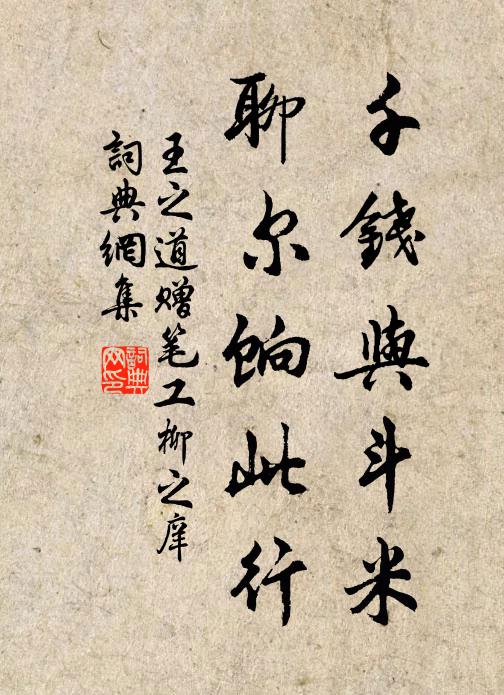 千錢與斗米
聊尔餉此行
王之道赠笔工柳之庠
詞典網集
詞典网印